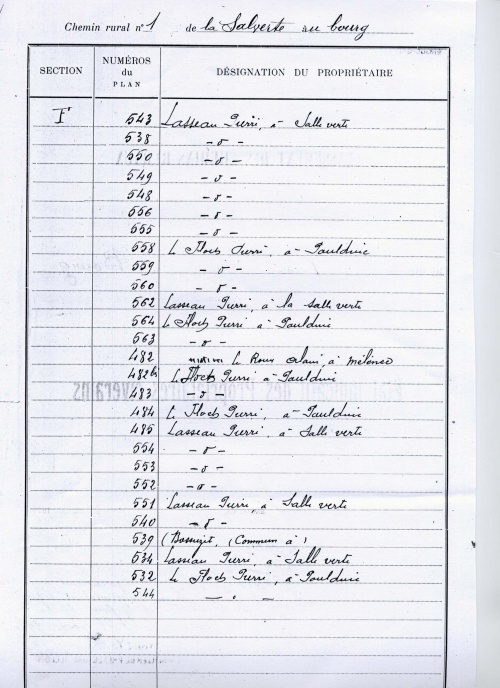 Chemin rural n° 1 de la Salverte au bourg
SECTION NUMÉROS du PLAN DÉSIGNATION DU PROPRIÉTAIRE
F 543 Lasseau Pierre, à Salle verte
538 - d -
550 - d -
549 - d -
548 - d -
556 - d -
555 - d -
558 Le Floch Pierre, à Poulduic
559 - d -
560 - d -
562 Lasseau Pierre, à la Salle verte
564 Le Floch Pierre à Poulduic
563 - d -
482 Le Roux Alain, à
482b Le Floch Pierre à Poulduic
483 - d -
484 Le Floch Pierre, à Poulduic
485 Lasseau Pierre, à Salle verte
554 - d -
553 - d -
552 - d -
551 Lasseau Pierre, à Salle verte
540 - d -
539 (Commun à)
534 Lasseau Pierre, à Salle verte
532 Le Floch Pierre, à Poulduic
544 - " -